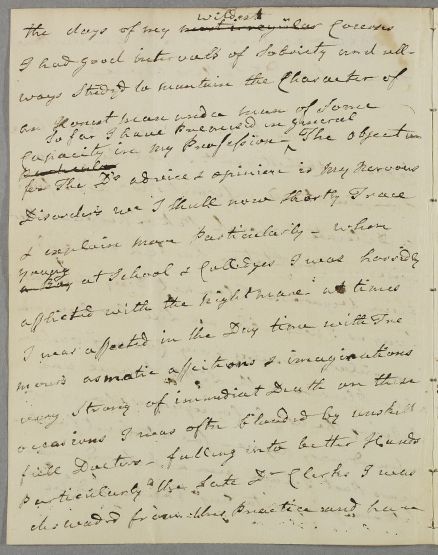 the days of my most irregular wildest Coerses
I had good intervals of Sobriety and all-
ways Studyd to mantain the Character of
an Honest man and a man of Some
Capacity in my Profession So far I have Premised in general The object
for The Drs advice & opinion is my Nervous
Disorders wc I Shall now Shortly Trace
& explain more particularly – when
a Boy young at School & Colledges I was horridly
afflicted with the Night mare at times
I was affected in the Day time with Tre
mours asmatic affections & imaginations
very strong of immediat Death on these
occasions I was ofte blooded by unskil
full Doctors – falling into better Hands
particularly the Late Dr Clerks I was
diswaded from this Practice and have